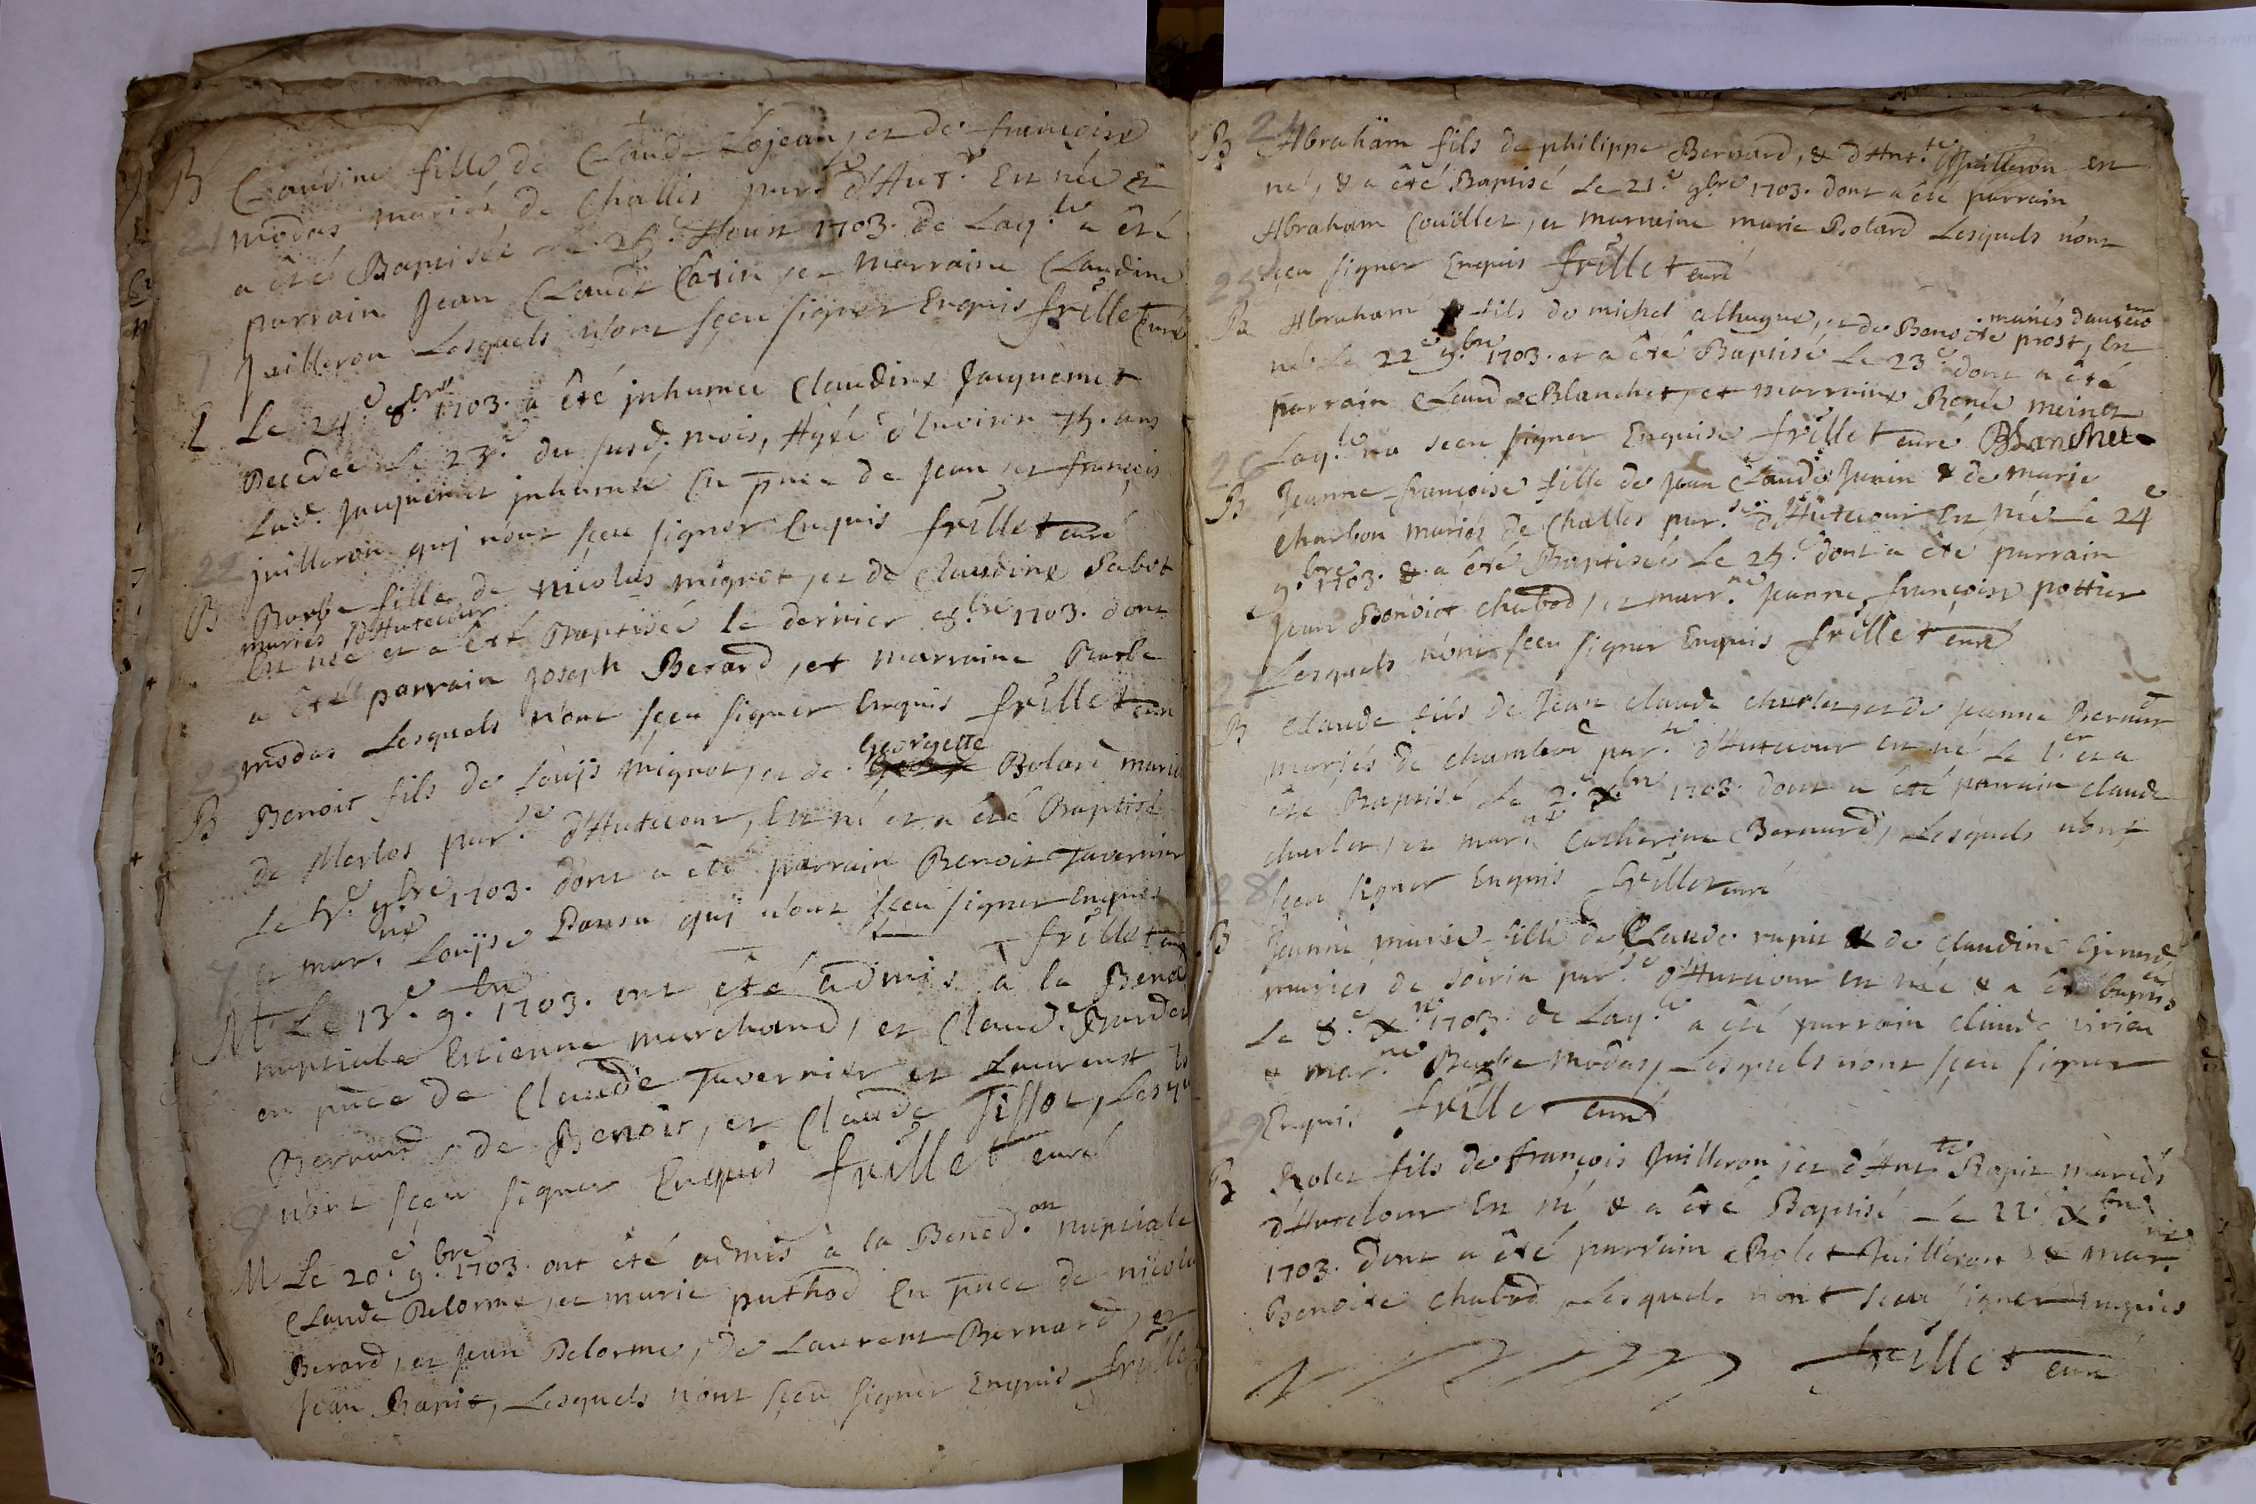 B Claudine fille de Claude Lojean, et de françoise
21 modas mariés de Challes par.se d'Aut.r Est née et
a été Baptisée le 25.e Aoust 1703. de Laq.lle a été
parrain Jean Claude Cotin et marraine Claudine
Juilleron Lesquels n'ont sçeu signer Enquis frillet curé
E Le 24.e 8.bre 1703. a été inhumée Claudine Jacquemet
Decedée le 23.e du susd. mois, Agée d'Environ 75. ans
Lad. Jacquemet inhumée En pnce de Jean et françois
juilleron quj n'ont sçeu signer Enquis frillet curé
22
B Barbe fille de nicolas mignot, et de Claudine Pabot
mariés d'Hutecour
Est née et a été Baptisée le dernier 8.bre 1703. dont
a été parrain Joseph Berard, et marraine Barbe
modas Lesquels n'ont sçeu signer Enquis frillet curé
23 Georgette
B Benoit fils de Loüjs mignot, et de Bolard mariés
de Merlos par.se d'Hutecour, Est né et a été Baptisé
Le 5.e 9.bre 1703. dont a été parrain Benoit Tavernier
et mar.ne Loüjse Pansu quj n'ont sçeu signer Enquis
7 frillet curé
M Le 13.e 9.bre 1703. ont été admis à la Bened
nuptiale Estienne marchand, et Claud.e Bordet
en pñce de Claude Tavernier et Laurent
Bernard, de Benoit, et Claude Tissot, Lesq
n'ont sçeu signer Enquis frillet curé
8
M Le 20.e 9.bre 1703. ont été admis à la Bened.on nuptiale
Claude Delorme, et marie puthod En pñce de nicolas
Berard, et Jean Delorme, de Laurent Bernard, et
Jean Rapit, Lesquels n'ont sçeu signer Enquis frillet
24
B Abrahäm fils de philippe Bernard, & d'Ant.te Juilleron est
né, & a été Baptisé Le 21.e 9bre 1703. dont a été parrain
Abraham Coüillet, et marraine marie Bolard Lesquels n'ont
sçeu signer Enquis frillet curé
25
B Abraham fils de michel alhugue, et de Benoite prost, Est
né Le 22.e 9.bre 1703. et a été Baptisé Le 23.e dont a été
parrain Claude Blanchet, et marraine Renée meinet
Laq.lle n'a sceu signer Enquise frillet curé Blanchet
26
B Jeanne françoise fille de Jean Claude Junin & de marie
Charbon mariés de Challes par.se d'Hutecour Est née Le 24.e
9.bre 1703. & a été Baptisée Le 25.e dont a été parrain
Jean Benoict chabod, et marr.ne Jeanne françoise pottier
Lesquels n'ont sceu signer Enquis frillet curé
27
B Claude fils de Jean Claude churlet, et de Jeanne Bernard
mariés de chambod par.se d'Hutecour est né Le 1.er et a
été Baptisé Le 2.e X.bre 1703. dont a été parrain claude
churlet, et mar.ne Catherine Bernard, Lesquels n'ont
28 sçeu signer Enquis frillet curé
B Jeanne marie fille de Claude rapit & de claudine
mariés de Soiria par.se d'Hutecour est née & a été baptisée
Le 8.e X.bre 1703. de Laq.lle a été parrain claude virieu
& mar.ne Barbe modas, Lesquels n'ont sçeu signer
Enquis frillet curé
29
B Rolet fils de françois Juilleron, et d'Ant.te Rapit mariés
d'Hutecour Est né & a été Baptisé Le 22.e X.bre
1703. dont a été parrain Rolet Juilleron & mar.ne
Benoite chabod, Lesquels n'ont sceu signer enquis
frillet curé